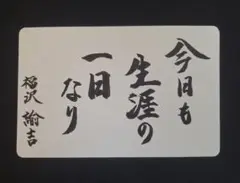 今日も
生涯の
一日
なり
福沢諭吉